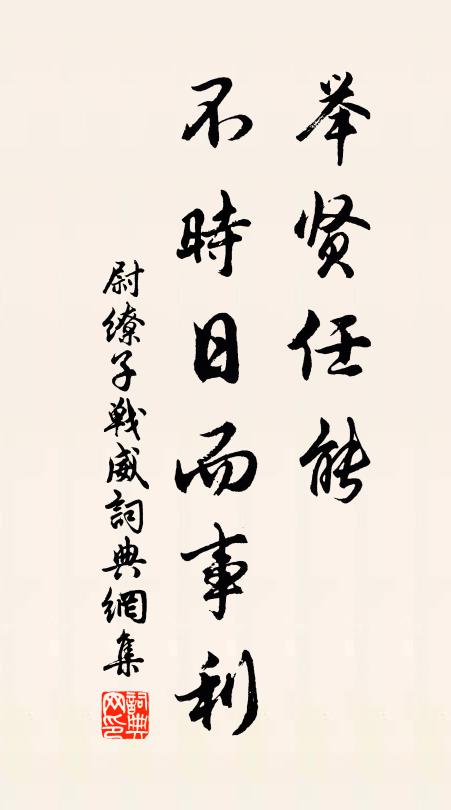 举贤任能
不時日而事利
尉繚子戰威詞典網集
詞典网印